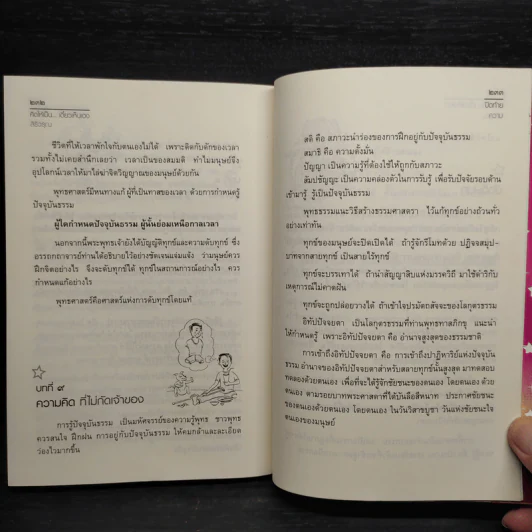 ๒๓๒
คิดให้เป็น... เดี๋ยวก็เห็นเอง
สิริวรุณ
ชีวิตที่ให้เวลาพักใจกับตนเองไม่ได้ เพราะติดกับดักของเวลา
รวมทั้งไม่เคยสำนึกเลยว่า เวลาเป็นของสมมติ ทำไมมนุษย์จึง
อุปโลกน์เวลาให้มาไล่ฆ่าจิตวิญญาณของมนุษย์ด้วยกัน
พุทธศาสตร์มีหนทางแก้ ผู้ที่เป็นทาสของเวลา ด้วยการกำหนดรู้
ปัจจุบันธรรม
ผู้ใดกำหนดปัจจุบันธรรม ผู้นั้นย่อมเหนือกาลเวลา
นอกจากนี้พระพุทธเจ้ายังได้บัญญัติทุกข์และความดับทุกข์ ซึ่ง
อรรถกถาจารย์ท่านได้อธิบายไว้อย่างชัดเจนแจ่มแจ้ง ว่ามนุษย์ควร
ฝึกจิตอย่างไร จึงจะดับทุกข์ได้ ทุกข์ในสถานการณ์อย่างไร ควร
กำหนดแก้อย่างไร
พุทธศาสตร์คือศาสตร์แห่งการดับทุกข์โดยแท้
บทที่ ๙
ความคิด ที่ไม่กัดเจ้าของ
การรู้ปัจจุบันธรรม เป็นมหัศจรรย์ของความรู้พุทธ ชาวพุทธ
ควรสนใจ ฝึกฝน การอยู่กับปัจจุบันธรรม ให้คมกล้าและละเอียด
ว่องไวมากขึ้น
๒๓๓
ปิดท้าย
ความ
สติ คือ สภาวะนำร่องของการฝึกอยู่กับปัจจุบันธรรม
สมาธิ คือ ความตั้งมั่น
ปัญญา เป็นความรู้ที่ต้องใช้ให้ถูกกับสภาวะ
สัมปชัญญะ เป็นความคล่องตัวในการรับรู้ เพื่อรับปัจจัยรอบด้าน
เข้ามารู้ รู้เป็นปัจจุบันธรรม
พุทธธรรมแนะวิธีสร้างธรรมศาสตรา ไว้แก้ทุกข์อย่างถ้วนทั่ว
อย่างเท่าทัน
ทุกข์ของมนุษย์จะปิดเปิดได้ ถ้ารู้จักรีโมทด้วย ปฏิจจสมุป-
บาทจากสายทุกข์ เป็นสายไร้ทุกข์
ทุกข์จะบรรเทาได้ ถ้านำสัญญาสิบแห่งมรรควิถี มาใช้ดำริกับ
เหตุการณ์ไม่คาดฝัน
ทุกข์จะถูกปล่อยวางได้ ถ้าเข้าใจปรมัตถสัจจะของโลกุตรธรรม
อิทัปปัจจยตา เป็นโลกุตรธรรมที่ท่านพุทธทาสภิกขุ แนะนำ
ให้กำหนดรู้ เพราะอิทัปปัจจยตา คือ อำนาจสูงสุดของธรรมชาติ
การเข้าถึงอิทัปปัจจยตา คือ การเข้าถึงปาฏิหาริย์แห่งปัจจุบัน
ธรรม อำนาจของอิทัปปัจจยตาสำหรับสลายทุกข์นั้นสูงสุด มาทดสอบ
ทดลองด้วยตนเอง เพื่อที่จะได้รู้จักชัยชนะของตนเอง โดยตนเอง ด้วย
ตนเอง ตามรอยบาทพระศาสดาที่ได้บันลือสีหนาท ประกาศชัยชนะ
ของตนเองด้วยตนเอง โดยตนเอง ในวันวิสาขบูชา วันแห่งชัยชนะใจ
ตนเองของมนุษย์